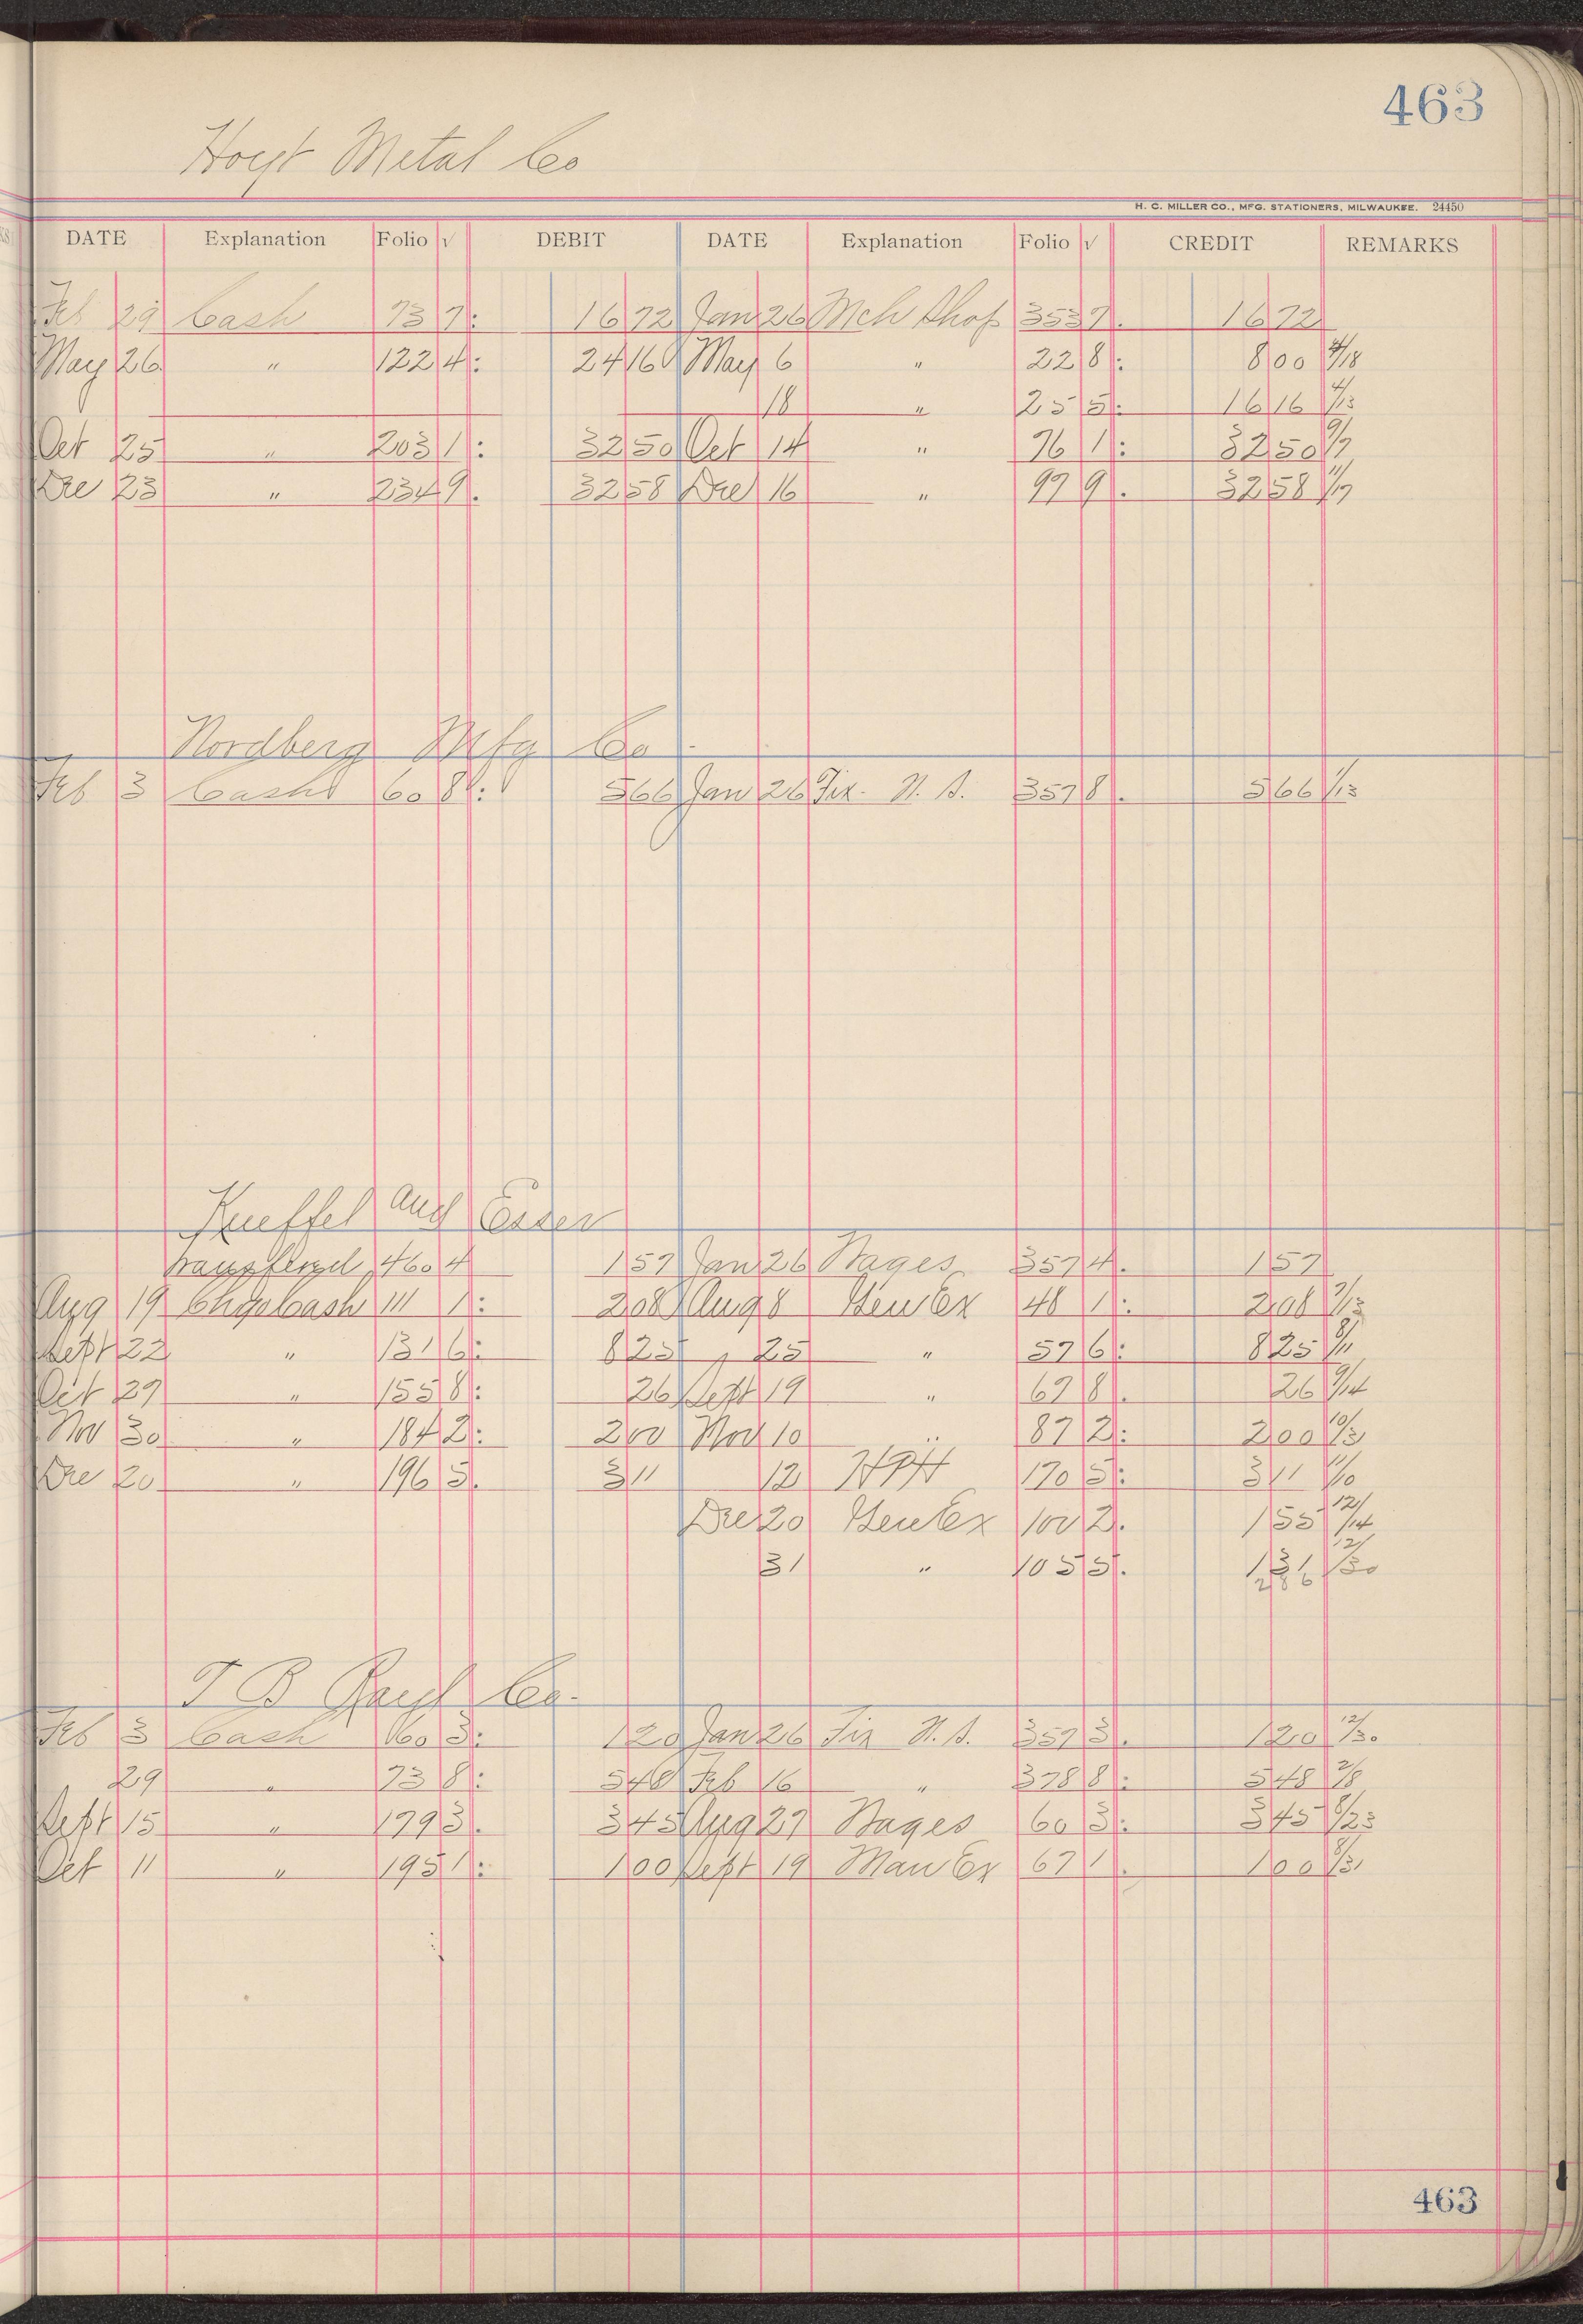 463
Hoyt Metal Co
H. C. MILLER CO., MFG. STATIONERS, MILWAUKEE. 24450
DATE Explanation Folio √ DEBIT DATE Explanation Folio √ CREDIT REMARKS
Feb 29 Cash 73 7: 16 72 Jan 26 Mch Shop 353 7. 16 72
May 26 " 122 4: 24 16 May 6 " 22 8: 8 00 4/18
18 " 25 5: 16 16 4/13
Oct 25 " 203 1: 32 50 Oct 14 " 76 1: 32 50 9/7
Dec 23 " 234 9. 32 58 Dec 16 " 97 9. 32 58 11/17
Nordberg Mfg Co
Feb 3 Cash 60 8: 5 66 Jan 26 Fix. N. S. 357 8. 5 66 1/13
Kueffel and Esser
transferred 460 4 1 57 Jan 26 Wages 357 4. 1 57
Aug 19 Chgo Cash 111 1: 2 08 Aug 8 Gen Ex 48 1: 2 08 7/13
Sept 22 " 131 6: 8 25 25 " 57 6: 8 25 8/11
Oct 29 " 155 8: 26 Sept 19 " 67 8. 26 9/14
Nov 30 " 184 2: 2 00 Nov 10 " 87 2: 2 00 10/3
Dec 20 " 196 5. 3 11 12 HPH 170 5: 3 11 11/10
Dec 20 Gen Ex 100 2. 1 55 12/14
31 " 105 5. 1 31 12/30
2 86
T B Rayl Co.
Feb 3 Cash 60 3: 1 20 Jan 26 Fix N. S. 357 3. 1 20 12/30
29 " 73 8: 5 48 Feb 16 " 378 8: 5 48 2/8
Sept 15 " 179 3. 3 45 Aug 27 Wages 60 3: 3 45 8/23
Oct 11 " 195 1: 1 00 Sept 19 Man Ex 67 1. 1 00 8/31
463